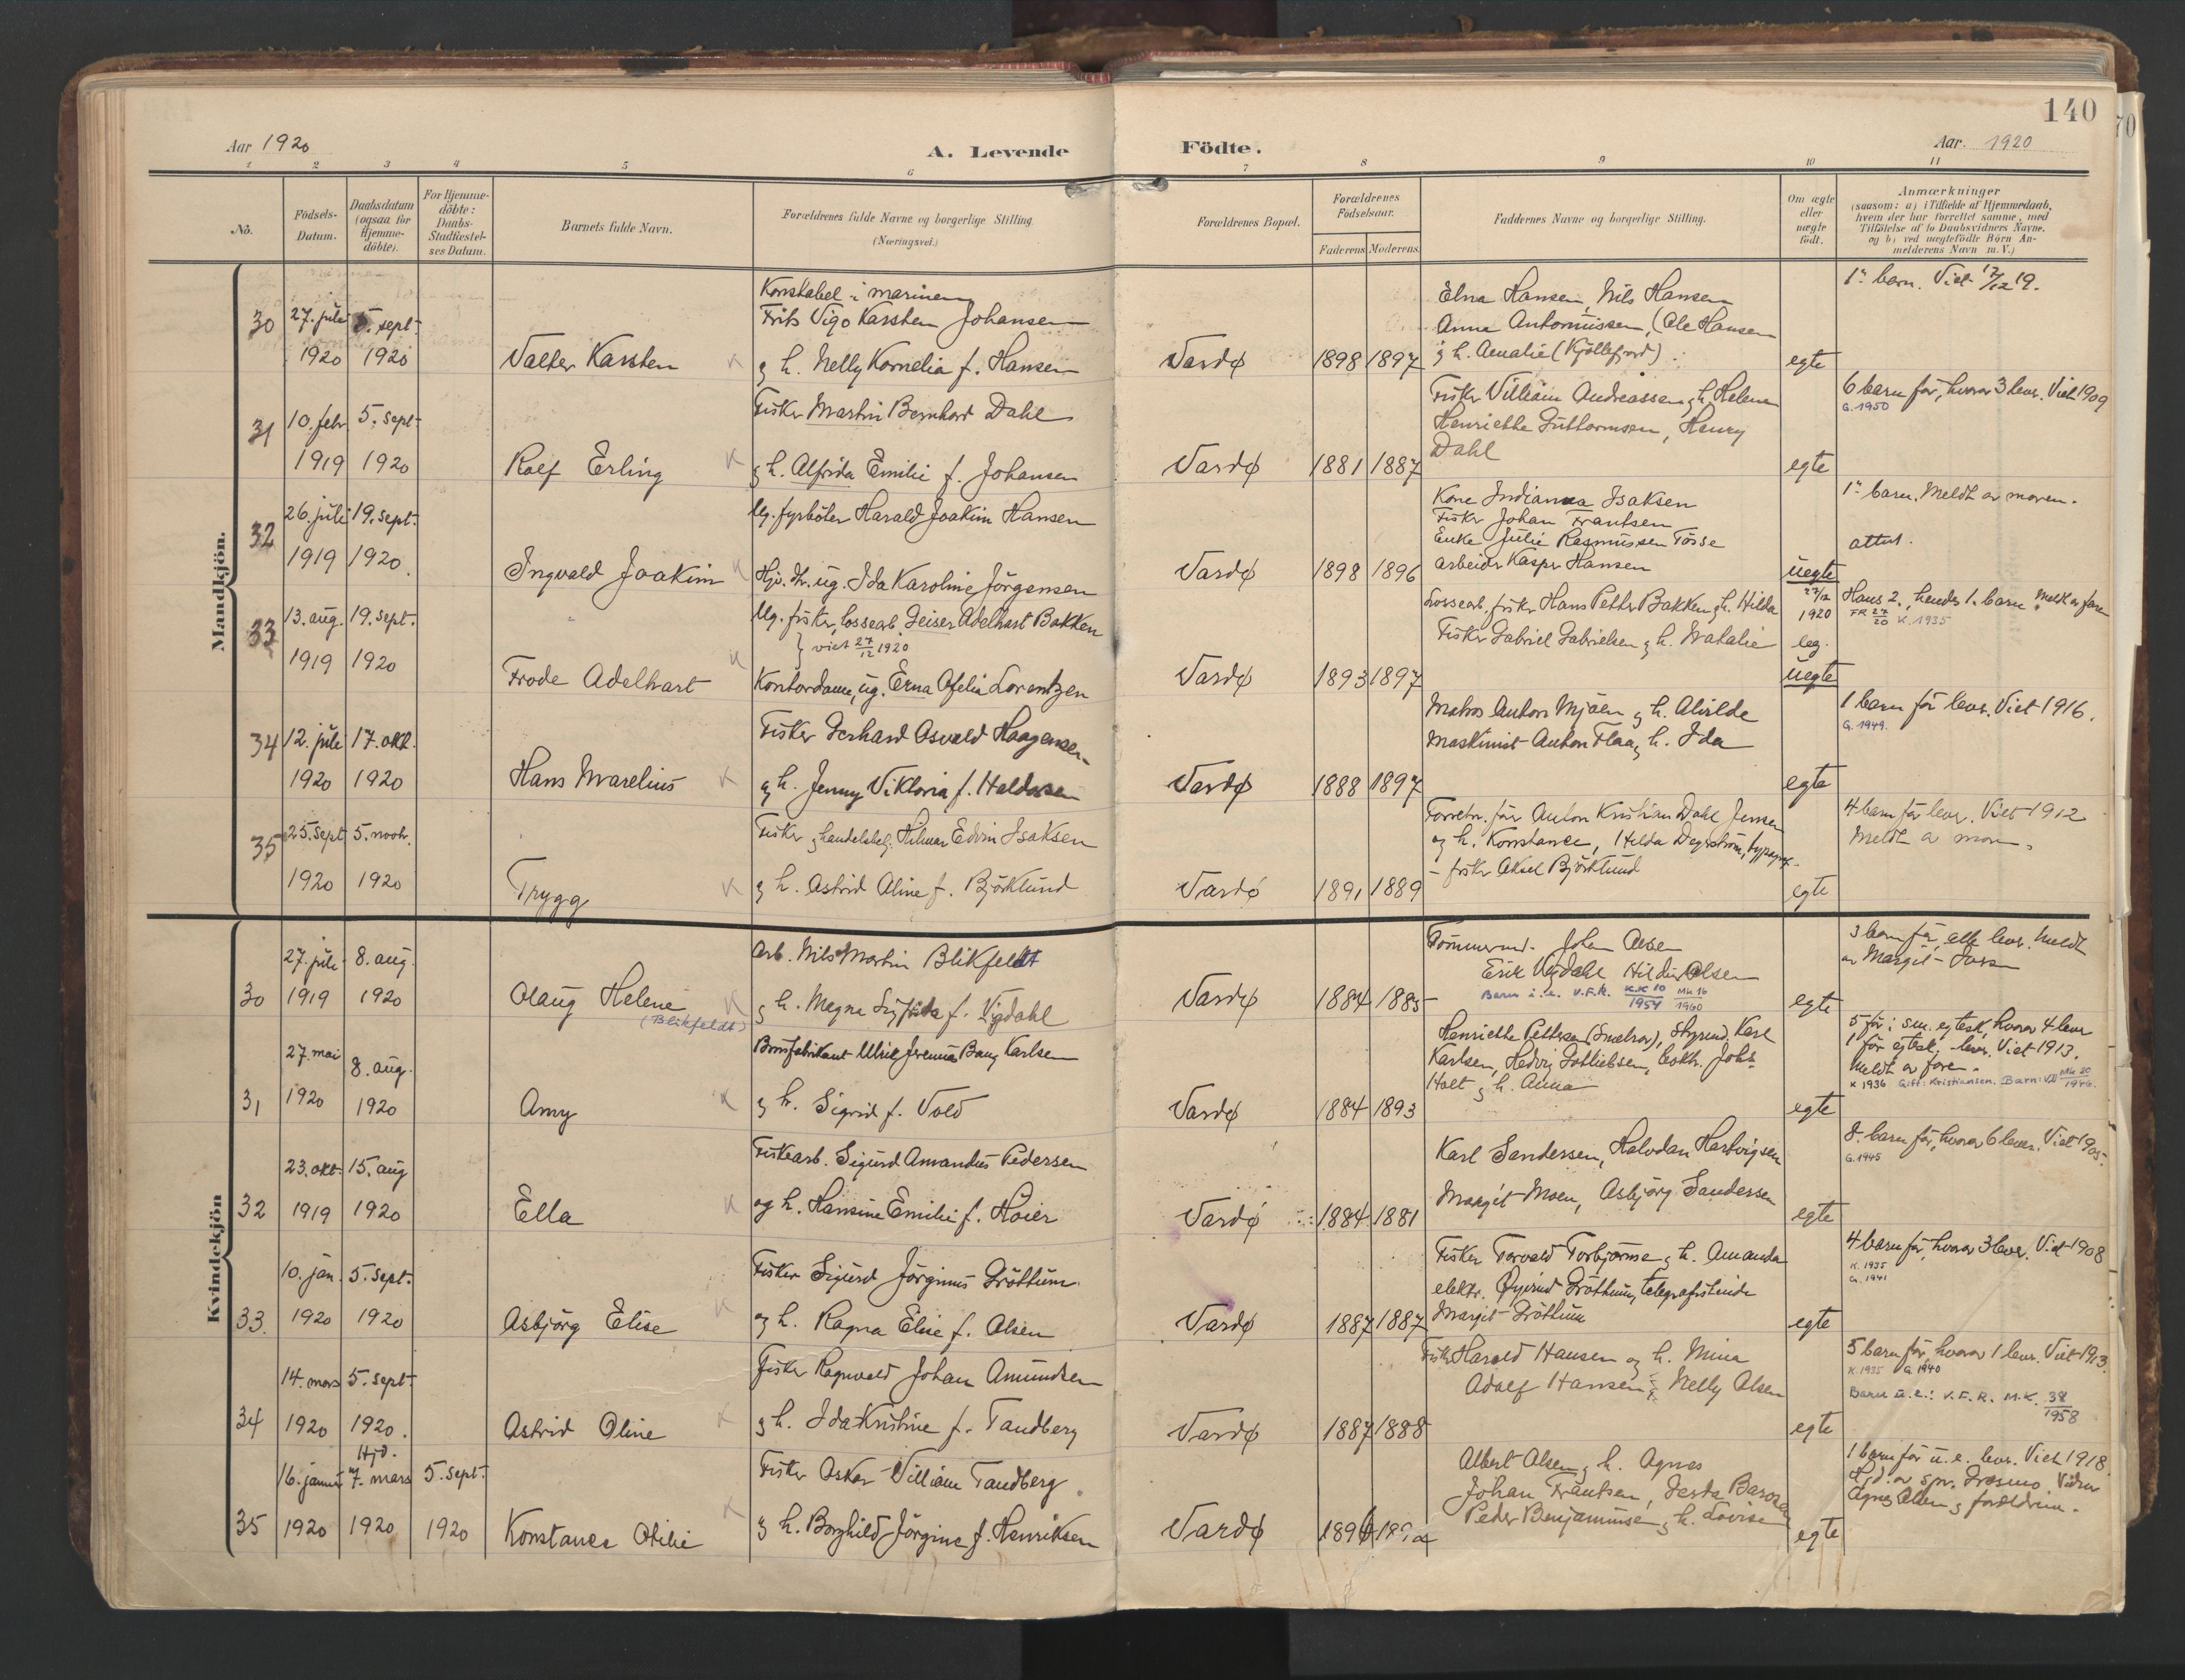 140
Aar 1920
A. Levende
Födte.
Aar. 1920
1 2 3 4 5 6 7 8 9 10 11
No.
Födsels-
Datum.
Daabsdatum
(ogsaa for
Hjemme-
döbte).
For Hjemme-
döbte:
Daabs-
Stadfæstel-
ses Datum.
Barnets fulde Navn.
Forældrenes fulde Navne og borgerlige Stilling.
(Næringsvei.)
Forældrenes Bopæl.
Forældrenes
Födselsaar.
Faderens
Moderens
Faddernes Navne og borgerlige Stilling.
Om ægte
eller
uægte
födt.
Anmærkninger
(saasom: a) i Tilfælde af Hjemmedaab,
hvem der har forrettet samme, med
Tilföielse af to Daabsvidners Navne,
og b) ved uægtefödte Börn An-
melderens Navn m. V.)
Mandkjön.
30
27. juli
1920
5. sept.
1920
Valter Karsten
Konstabel i marinen
Frits Vigo Karsten Johansen
g h. Nelly Kornelia f. Hansen
Vardø
1898
1897
Elna Hansen, Nils Hansen
Anna Antoniussen, (Ole Hansen
g h. Amalie (Kjöllefjord)
egte
1ste barn. Viet 17/12 19.
31
10. febr.
1919
5. sept.
1920
Rolf Erling
Fisker Martin Bernhard Dahl
g h. Alfrida Emilie f. Johansen
Vardø
1881
1887
Fisker Villiam Andreassen g h. Helene
Henriette Guttormsen, Henry
Dahl
egte
6 barn för, hvorav 3 lever. Viet 1909
G. 1950
32
26. juli
1919
19. sept.
1920.
Ingvald Joakim
Ug. fyrböter Harald Joakim Hansen
Hjv. dtr. ug. Ida Karoline Jörgensen
Vardø
1898
1896
Kone Indianna Isaksen
Fisker Johan Frantsen
Enke Julie Rasmussen Tosse
arbeider Kasper Hansen
uegte
1ste barn. Meldt av moren.
attest.
33
13. aug.
1919
19. sept.
1920
Frode Adelhart
Ug. fisker, lossearb. Geiser Adelhart Bakken
} viet 27/12 1920
Kontordame, ug. Erna Ofelia Lorentzen
Vardø
1893
1897
Lossearb., fisker Hans Petter Bakken g h. Hilda
Fisker Gabriel Gabrielsen g h. Natalie
27/12
1920
leg.
uegte
Hans 2., hendes 1. barn. Meldt av faren
FR 27/20 K. 1935
34
12. juli
1920
17. okt.
1920
Hans Marelius
Fisker Gerhard Osvald Haagensen
g h. Jenny Viktoria f. Haldorsen
Vardø
1888
1897
Matros Anton Mjöen g h. Alvilde
Maskinist Anton Flaa g h. Ida
egte
1 barn för lever. Viet 1916.
G. 1949.
35
25. sept
1920
5. novbr.
1920
Trygg
Fisker g handelsbetj. Hilmar Edvin Isaksen
g h. Astrid Aline f. Björklund
Vardö
1891
1889
Forretn. före Anton Kristian Dahl Jensen
og h. Konstance, Hilda Degerström, typograf
- fisker Aksel Björklund
egte
4 barn för lever. Viet 1912
Meldt av mor.
Kvindekjön
30
27. juli
1919
8. aug.
1920
Olaug Helene
(Blikfeldt)
Arb. Nils Martin Blikfeldt
g h. Magna Sigfrida f. Vigdahl
Vardø
1884
1885
Tömmermd. Johan Olsen
Erik Vigdahl Hildur Olsen
Barn u. e. V.F.R. K.K 10/1954 MK 16/1960
egte
3 barn för, alle lever. Meldt
av Margit
31
27. mai
1920
8. aug.
1920
Amy
Brusfabrikant Ulrik Jeremias Bang Karlsen
g h. Sigrid f. Vold
Vardø
1884
1893
Henriette Pettersen (Smelror), Styrmd. Karl
Karlsen, Hedvig Gottliebsen, Johs.
Holt g h. Anna
egte
5 för i sm. egtesk, hvorav 4 lever
1 för egtesk, lever. Viet 1913.
Meldt av faren.
K 1936 Gift: Kristiansen. Barn: VII MK 20/1946.
32
23. okt.
1919
15. aug
1920
Ella
Fiskearb. Sigurd Amandus Pedersen
og h. Hansine Emilie f. Höier
Vardø
1884
1881
Karl Sandersen, Halvdan Hartvigsen
Margit Moen, Asbjörg Sandersen
egte
8. barn för, hvorav 6 lever. Viet 1905.
G. 1945
33.
10. jan.
1920
5. sept.
1920
Asbjörg Elise
Fisker Sigurd Jörginus Gröttum
og h. Ragna Elise f. Olsen
Vardø
1887
1887
Fisker Torvald Torbjörnse g h. Amanda
elektr. Öyvind Gröttum, telegrafistinde
Margit Gröttum
egte
4 barn för, hvorav 3 lever. Viet 1908
K. 1935
G. 1941
34
14. mars
1920
5. sept.
1920.
Astrid Oline
Fisker Ragnvald Johan Amundsen
g h. Ida Kristine f. Tandberg
Vardø
1887
1888
Fisker Harald Hansen og h. Mina
Adolf Hansen g Nelly Olsen
egte
5 barn för, hvorav 1 lever. Viet 1913.
K. 1935 G. 1940
Barn u.e.: V.F.R. M.K. 38/1958
35
16. januar
1920
Hjd.
7. mars
1920
5. sept.
1920
Konstance Otilie
Fisker Oskar Villiam Tandberg.
g h. Borghild Jörgine f. Henriksen
Vardø
1896
Albert Olsen g h. Agnes
Johan Frantsen, Gerda
Peder Benjaminse g h. Lovise
egte
1 barn för u. e. lever. Viet 1918.
Hjd. av spr. Grasmo. Vidner
Agnes Olsen g foreldrene.